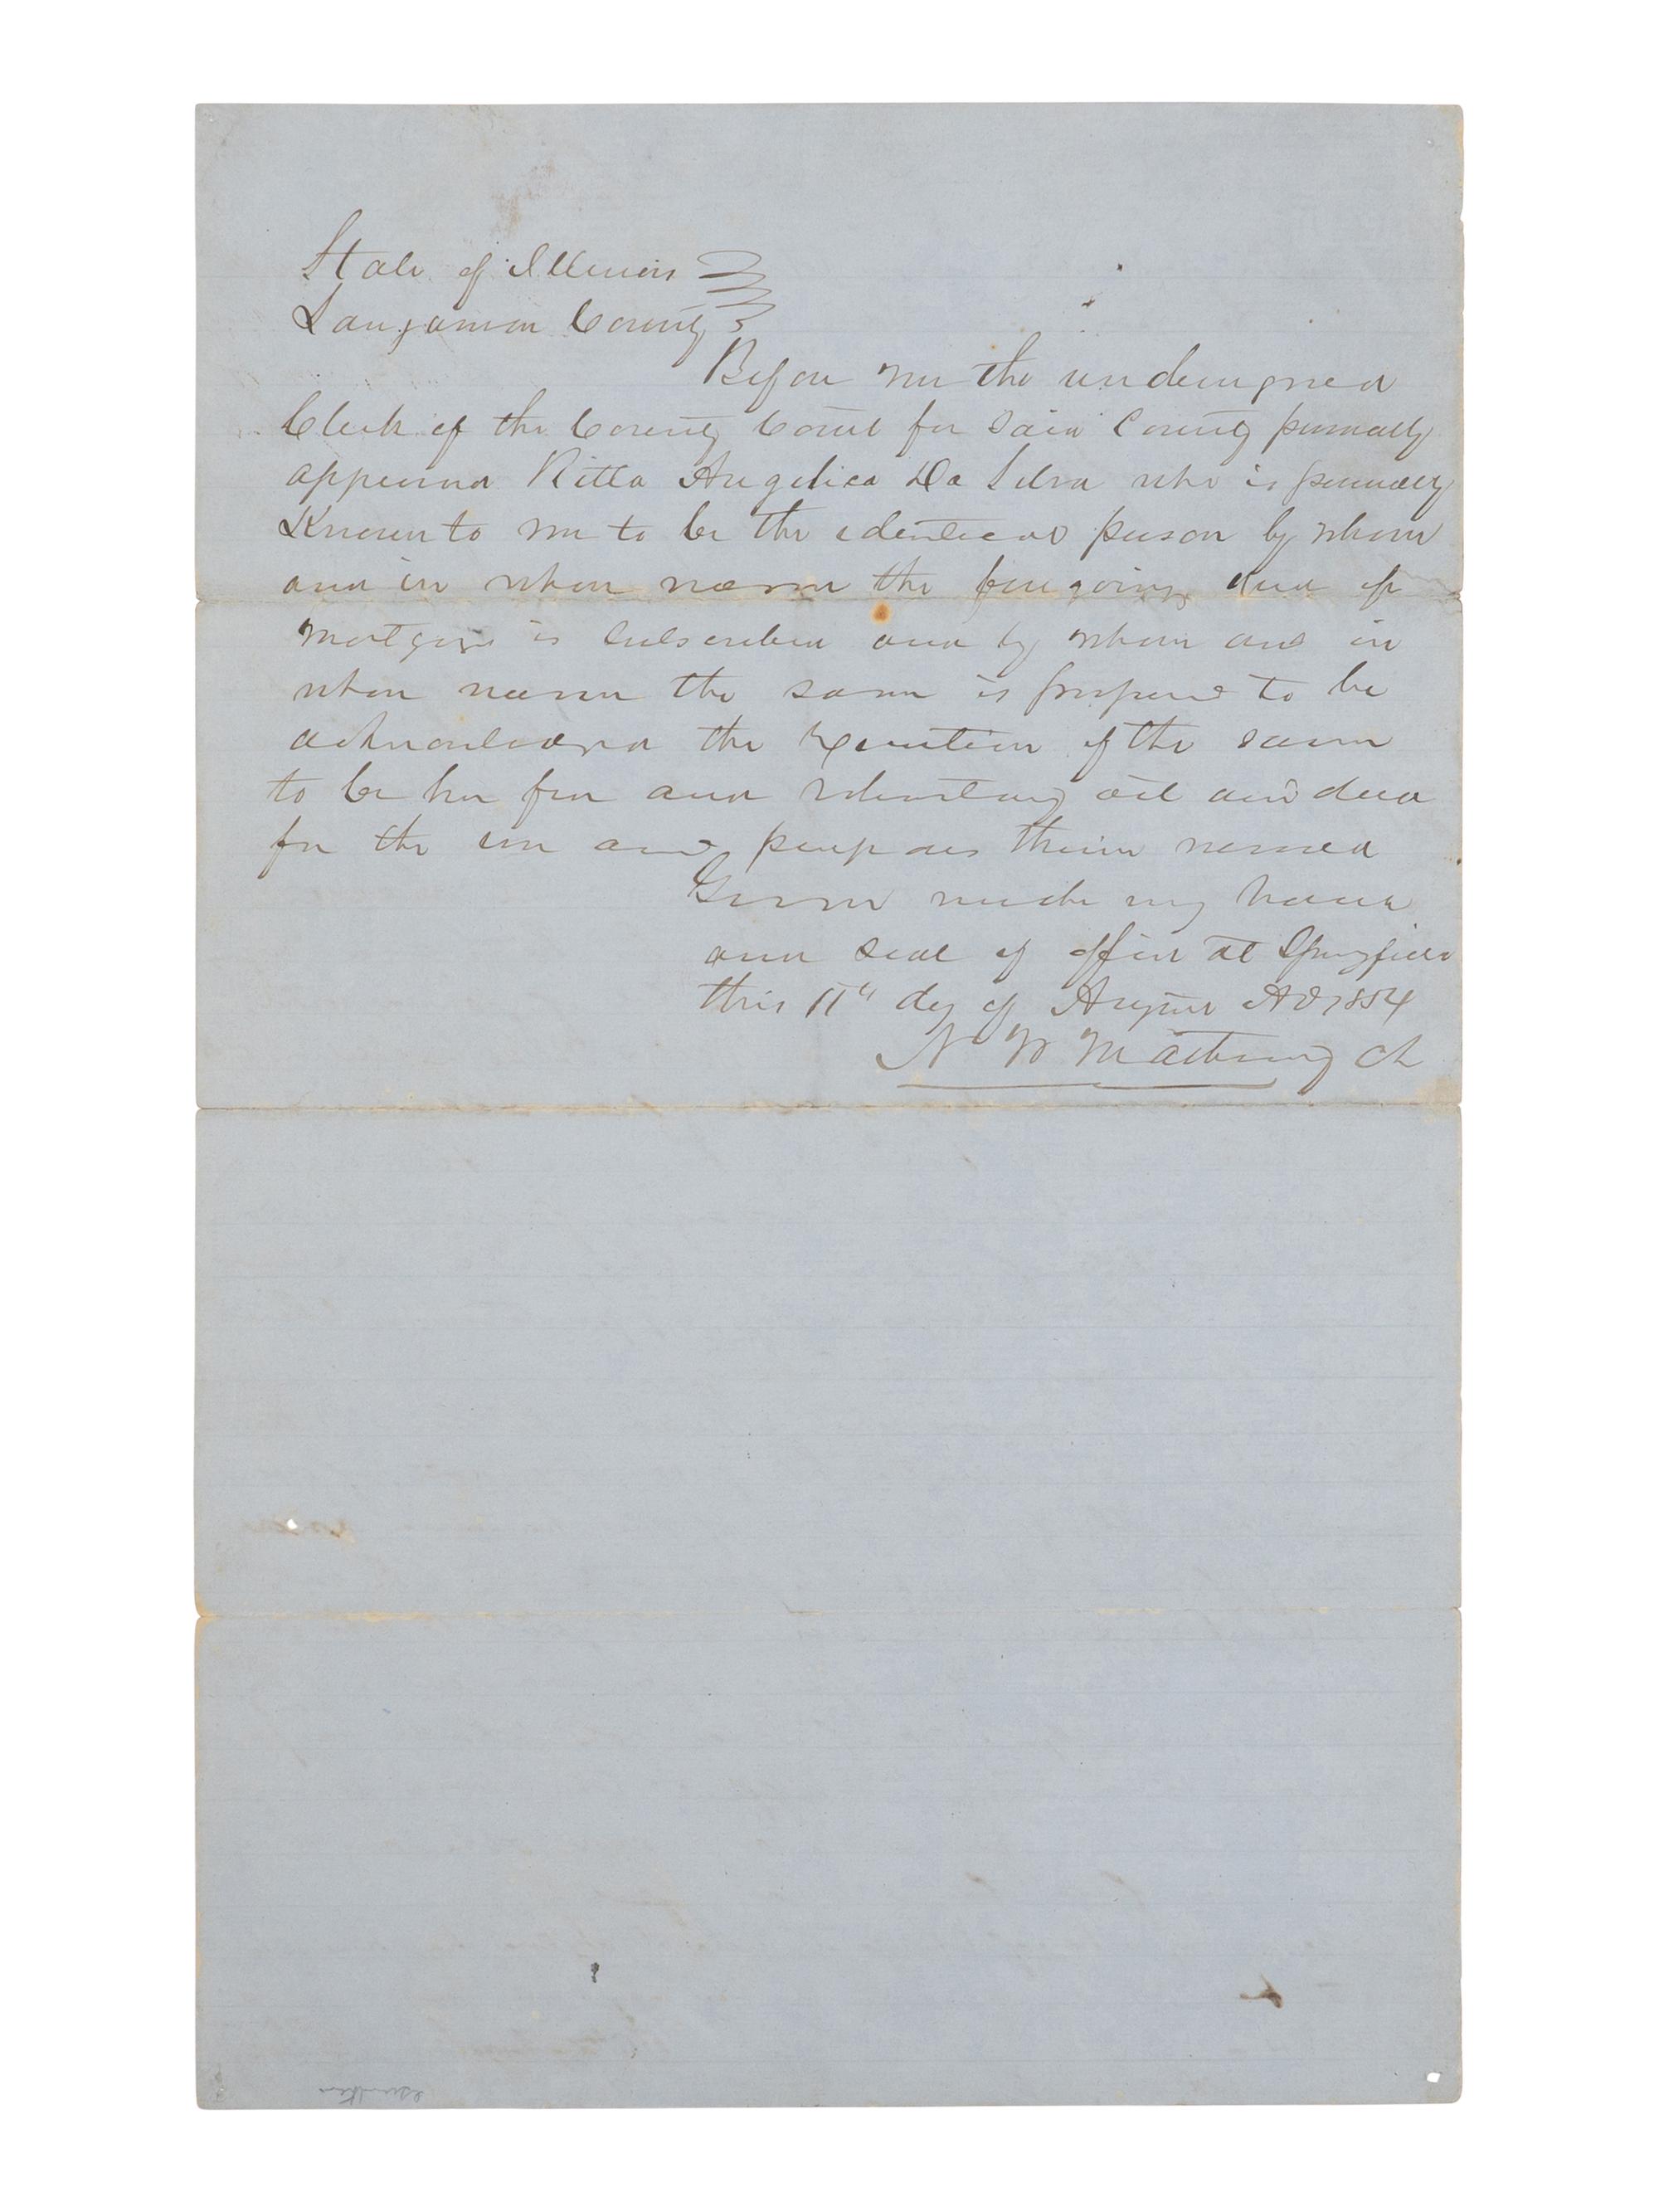 State of Illinois
Sangamon County
Before me the undersigned
Clerk of the County Court for said County personally
appeared Ritta Angelica Da Silva who is personally
Known to me to be the identical person by whom
and in whose name the foregoing deed of
Mortgage is subscribed and by whom and in
whose name the same is proposed to be
acknowledged the Execution of the same
to be her free and voluntary act and deed
for the use and purposes therein named
Given under my hand
and seal of office at Springfield
this 11th day of August AD 1854
N W Matheny Cl